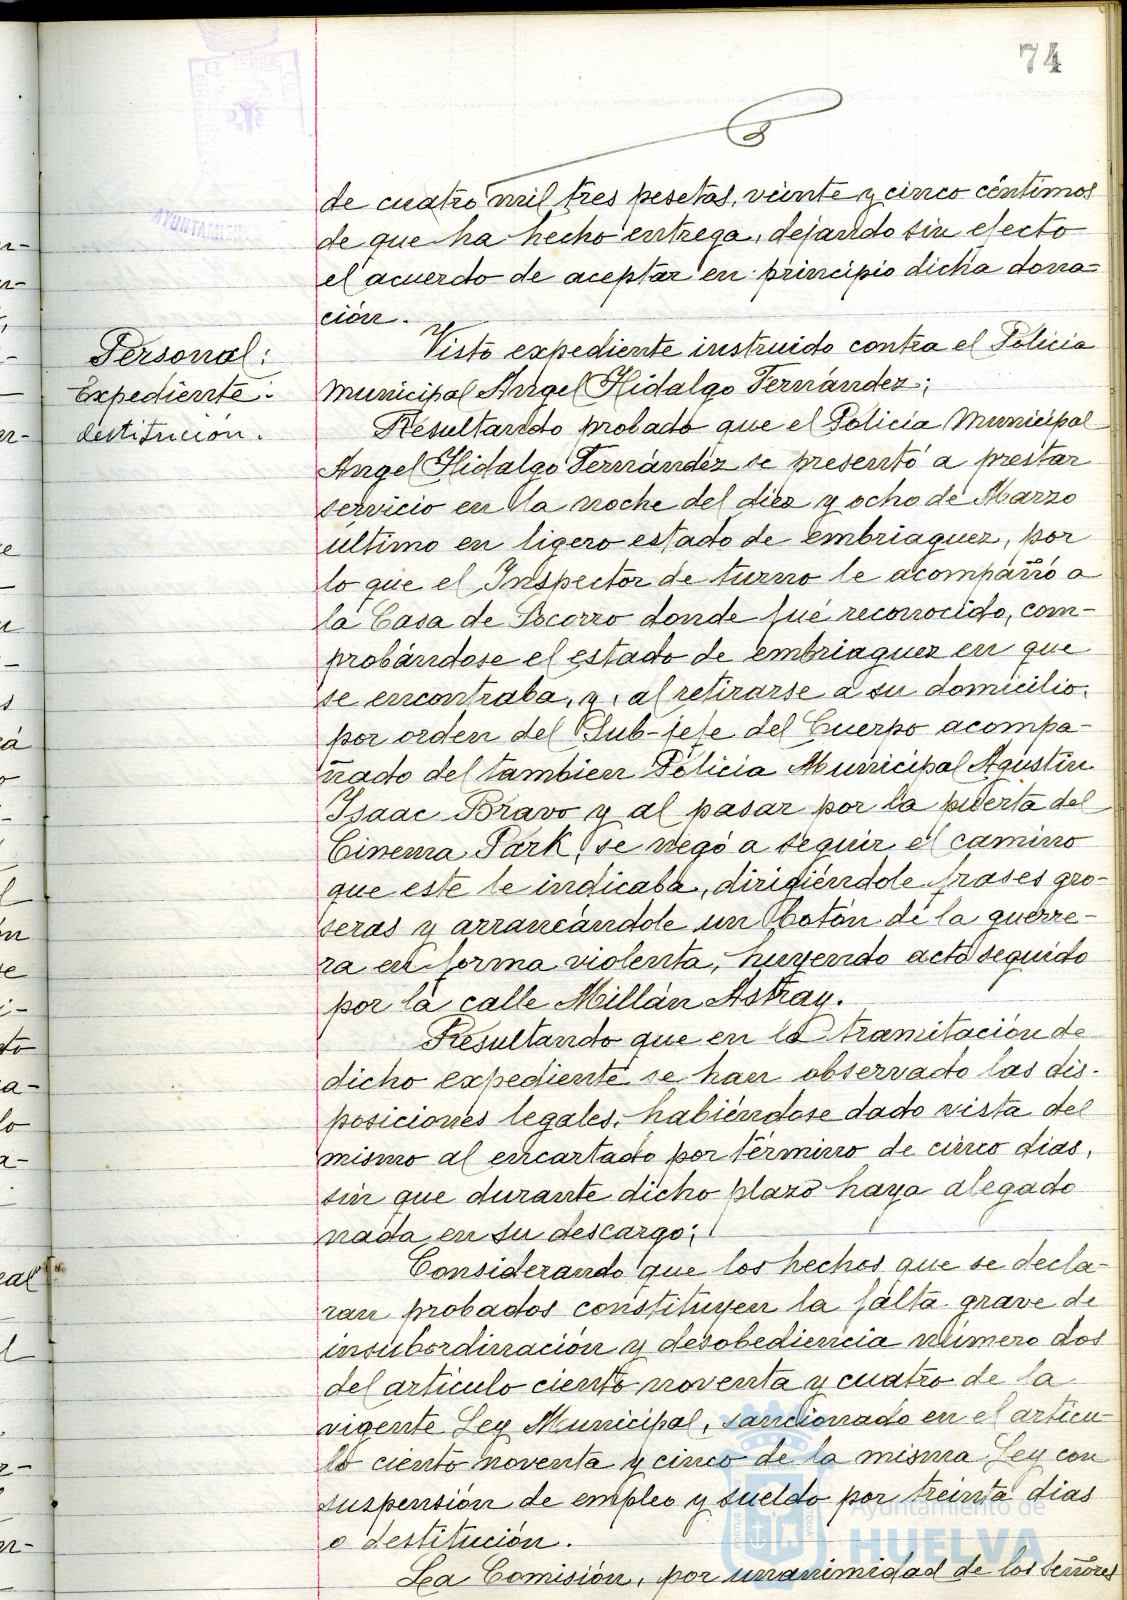 74
de cuatro mil tres pesetas, veinte y cinco céntimos
de que ha hecho entrega, dejando sin efecto
el acuerdo de aceptar en principio dicha dona=
ción.
Personal:
Expediente:
destitución.
Visto expediente instruido contra el Policia
Municipal Angel Hidalgo Fernández;
Resultando probado que el Policia Municipal
Angel Hidalgo Fernández se presentó a prestar
servicio en la noche del diez y ocho de Marzo
último en ligero estado de embriaguez, por
lo que el Inspector de turno le acompañó a
la Casa de Socorro donde fué reconocido, com-
probándose el estado de embriaguez en que
se encontraba, y, al retirarse a su domicilio,
por orden del Sub-jefe del Cuerpo acompa-
ñado del tambien Policia Municipal Agustin
Isaac Bravo y al pasar por la puerta del
Cinema Park, se negó a seguir el camino
que este le indicaba, dirigiéndole frases gro-
seras y arrancándole un botón de la guerre-
ra en forma violenta, huyendo acto seguido
por la calle Millán Astray.
Resultando que en la tramitación de
dicho expediente se han observado las dis-
posiciones legales, habiéndose dado vista del
mismo al encartado por término de cinco dias,
sin que durante dicho plazo haya alegado
nada en su descargo;
Considerando que los hechos que se decla-
ran probados constituyen la falta grave de
insubordinación y desobediencia número dos
del articulo ciento noventa y cuatro de la
vigente Ley Municipal, sancionado en el articu-
lo ciento noventa y cinco de la misma Ley con
suspensión de empleo y sueldo por treinta dias
o destitución.
La Comisión, por unanimidad de los señores
Ayuntamiento de
HUELVA